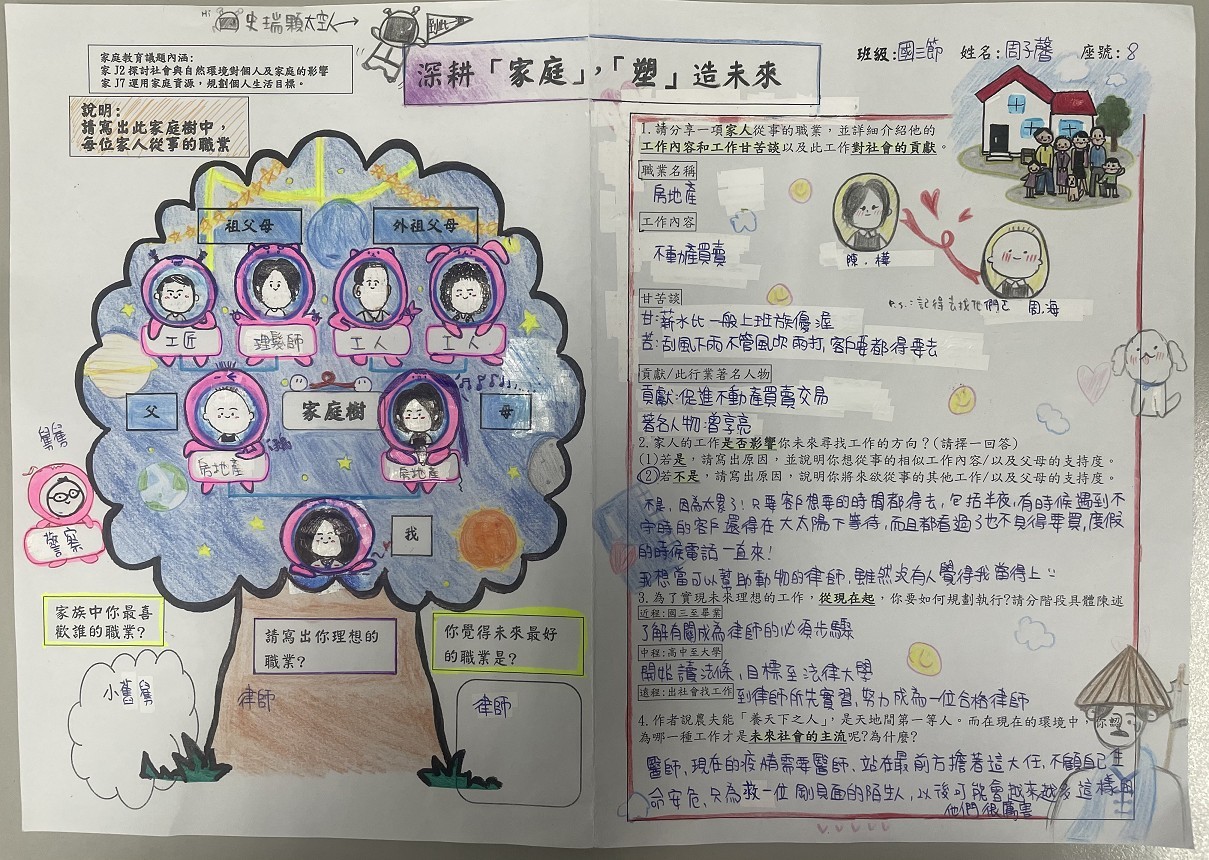 Hi 史瑞顆太空人→
到此
家庭教育議題內涵:
家 J2 探討社會與自然環境對個人及家庭的影響
家 J7 運用家庭資源，規劃個人生活目標。
說明:
請寫出此家庭樹中，
每位家人從事的職業
深耕「家庭」，「塑」造未來
班級:國三節 姓名:周子馨 座號:8
祖父母
外祖父母
工匠
理髮師
工人
工人
父
家庭樹
母
房地產
房地產
舅舅
警察
我
家族中你最喜
歡誰的職業?
小舊舅
請寫出你理想的
職業?
律師
你覺得未來最好
的職業是?
律師
1. 請分享一項家人從事的職業，並詳細介紹他的
工作內容和工作甘苦談以及此工作對社會的貢獻。
職業名稱
房地產
工作內容
不動產買賣
陳.樺
p.s.:記得去找他們 周.海
甘苦談
甘:薪水比一般上班族優渥
苦:刮風下雨不管風吹雨打,客戶要都得要去
貢獻/此行業著名人物
貢獻:促進不動產買賣交易
著名人物:曾享亮
2. 家人的工作是否影響你未來尋找工作的方向？(請擇一回答)
(1)若是，請寫出原因，並說明你想從事的相似工作內容/以及父母的支持度。
(2)若不是，請寫出原因，說明你將來欲從事的其他工作/以及父母的支持度。
不是，因為太累了!只要客戶想要的時間都得去,包括半夜,有時候遇到不
守時的客戶還得在大太陽下等待，而且都看過了也不見得要買,度假
的時候電話一直來!
我想當可以幫助動物的律師,雖然沒有人覺得我當得上
3. 為了實現未來理想的工作，從現在起，你要如何規劃執行?請分階段具體陳述
近程:國三至畢業
了解有關成為律師的必須步驟
中程:高中至大學
開始讀法條,目標至法律大學
遠程:出社會找工作 到律師所先實習,努力成為一位合格律師
4. 作者說農夫能「養天下之人」，是天地間第一等人。而在現在的環境中，你認
為哪一種工作才是未來社會的主流呢?為什麼?
醫師,現在的疫情需要醫師、站在最前方擔著這大任,不顧自己生
命安危,只為救一位剛見面的陌生人,以後可能會越來越多這樣
他們很厲害